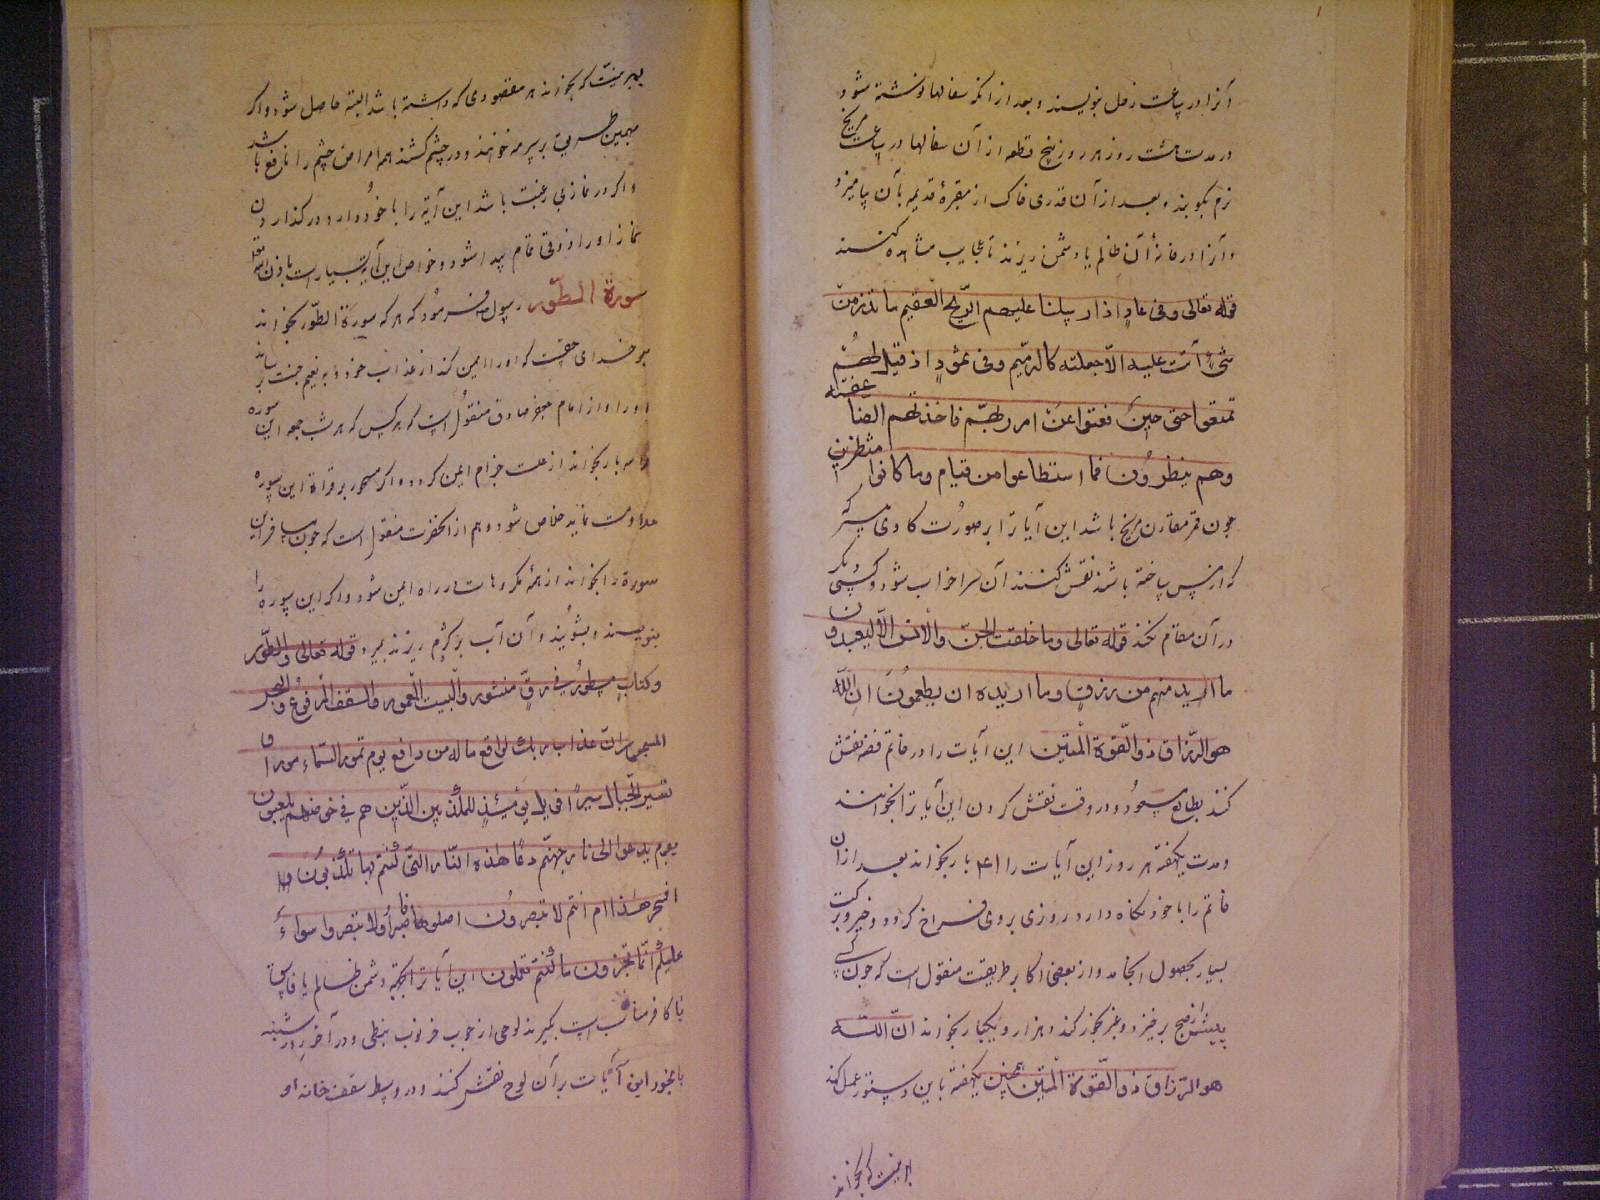 آنرا در ساعت زحل بنویسند و بعد از آنکه سفالها نوشته شود
در مدت هشت روز هر روز پنج قطعه از آن سفالها در ساعت مریخ
نرم بکوبند و بعد از آن قدری خاک از مقبرهٔ قدیمه بآن بیامیزد
و آنرا در خانهٔ آن ظالم یا دشمن ریزند تا عجایب مشاهده کنند
قوله تعالی وفی عاد اذ ارسلنا علیهم الریح العقیم ما تذر من
شیء اتت علیه الا جعلته کالرمیم وفی ثمود اذ قیل لهم
تمتعوا حتی حین فعتوا عن امر ربهم فاخذتهم الصاعقة
وهم ینظرون فما استطاعوا من قیام وما کانوا منتظرین
چون قمر مقارن مریخ باشد این آیاترا بر صورت کاوی
که از مس ساخته باشند نقش کنند آن سرا خراب شود و کسی دیگر
در آن مقام نکند قوله تعالی وما خلقت الجن والانس الا لیعبدون
ما ارید منهم من رزق وما ارید ان یطعمون ان الله
هو الرزاق ذو القوة المتین این آیات را در خاتم فضه نقش
کنند بطالع مسعود و در وقت نقش کردن این آیاترا بخوانند
و مدت یکهفته هر روز این آیات را ۱۴۱ بار بخواند بعد از آن
خاتم را با خود نکاه دارد روزی بروی فراخ کردد و خیر و برکت
بسیار بحصول انجامد و از بعضی اکابر طریقت منقول است که چون کسی
پیش از صبح برخیزد و هزار و یکبار بخواند ان الله
هو الرزاق ذو القوة المتین همچنین یکهفته باین دستور عمل کند
بهر نیت که بخواند
بهر نیت که بخواند هر مقصودی که داشته باشد البته حاصل شود و اکر
بهمین طریق بر سرمه خوانند و در چشم کشند همه امراض چشم را نافع باشد
و اکر در نماز بی رغبت باشد این آیة را با خود دارد در کذاردن
نماز او را ذوقی تمام پیدا شود و خواص این آیة بسیار است باذن الله تعالی
سورة الطور رسول فرمود که هر که سورة الطور بخواند
بر خدای حقست که او را ایمن کند از عذاب خود و به نعیم جنت رساند
او را و از امام جعفر صادق منقول است که هر کس که هر شب جمعه این سوره
را سه بار بخواند از علت جزام ایمن کردد و اکر مسجون بر قراة این سوره
مداومت نماید خلاص شود و هم از آنحضرت منقول است که چون مسافر این
سورة را بخواند از همهٔ مکروهات در راه ایمن شود و اکر این سوره را
بنویسند و بشویند و آن آب بر کژدم ریزند بمیرد قوله تعالی والطور
وکتاب مسطور فی رق منشور والبیت المعمور والسقف المرفوع والبحر
المسجور ان عذاب ربک لواقع ما له من دافع یوم تمور السماء مورا و
تسیر الجبال سیرا فویل یومئذ للمکذبین الذین هم فی خوض یلعبون
یوم یدعون الی نار جهنم دعا هذه النار التی کنتم بها تکذبون
افسحر هذا ام انتم لا تبصرون اصلوها فاصبروا او لا تصبروا سواء
علیکم انما تجزون ما کنتم تعملون این آیاترا بجهة دشمن ظالم یا فاسق
یا کافر مناسب است بکیرند لوحی از چوب خرنوب نبطی و در آخر روز شنبه
با بخور این آیات بر آن لوح نقش کنند و در وسط سقف خانه او